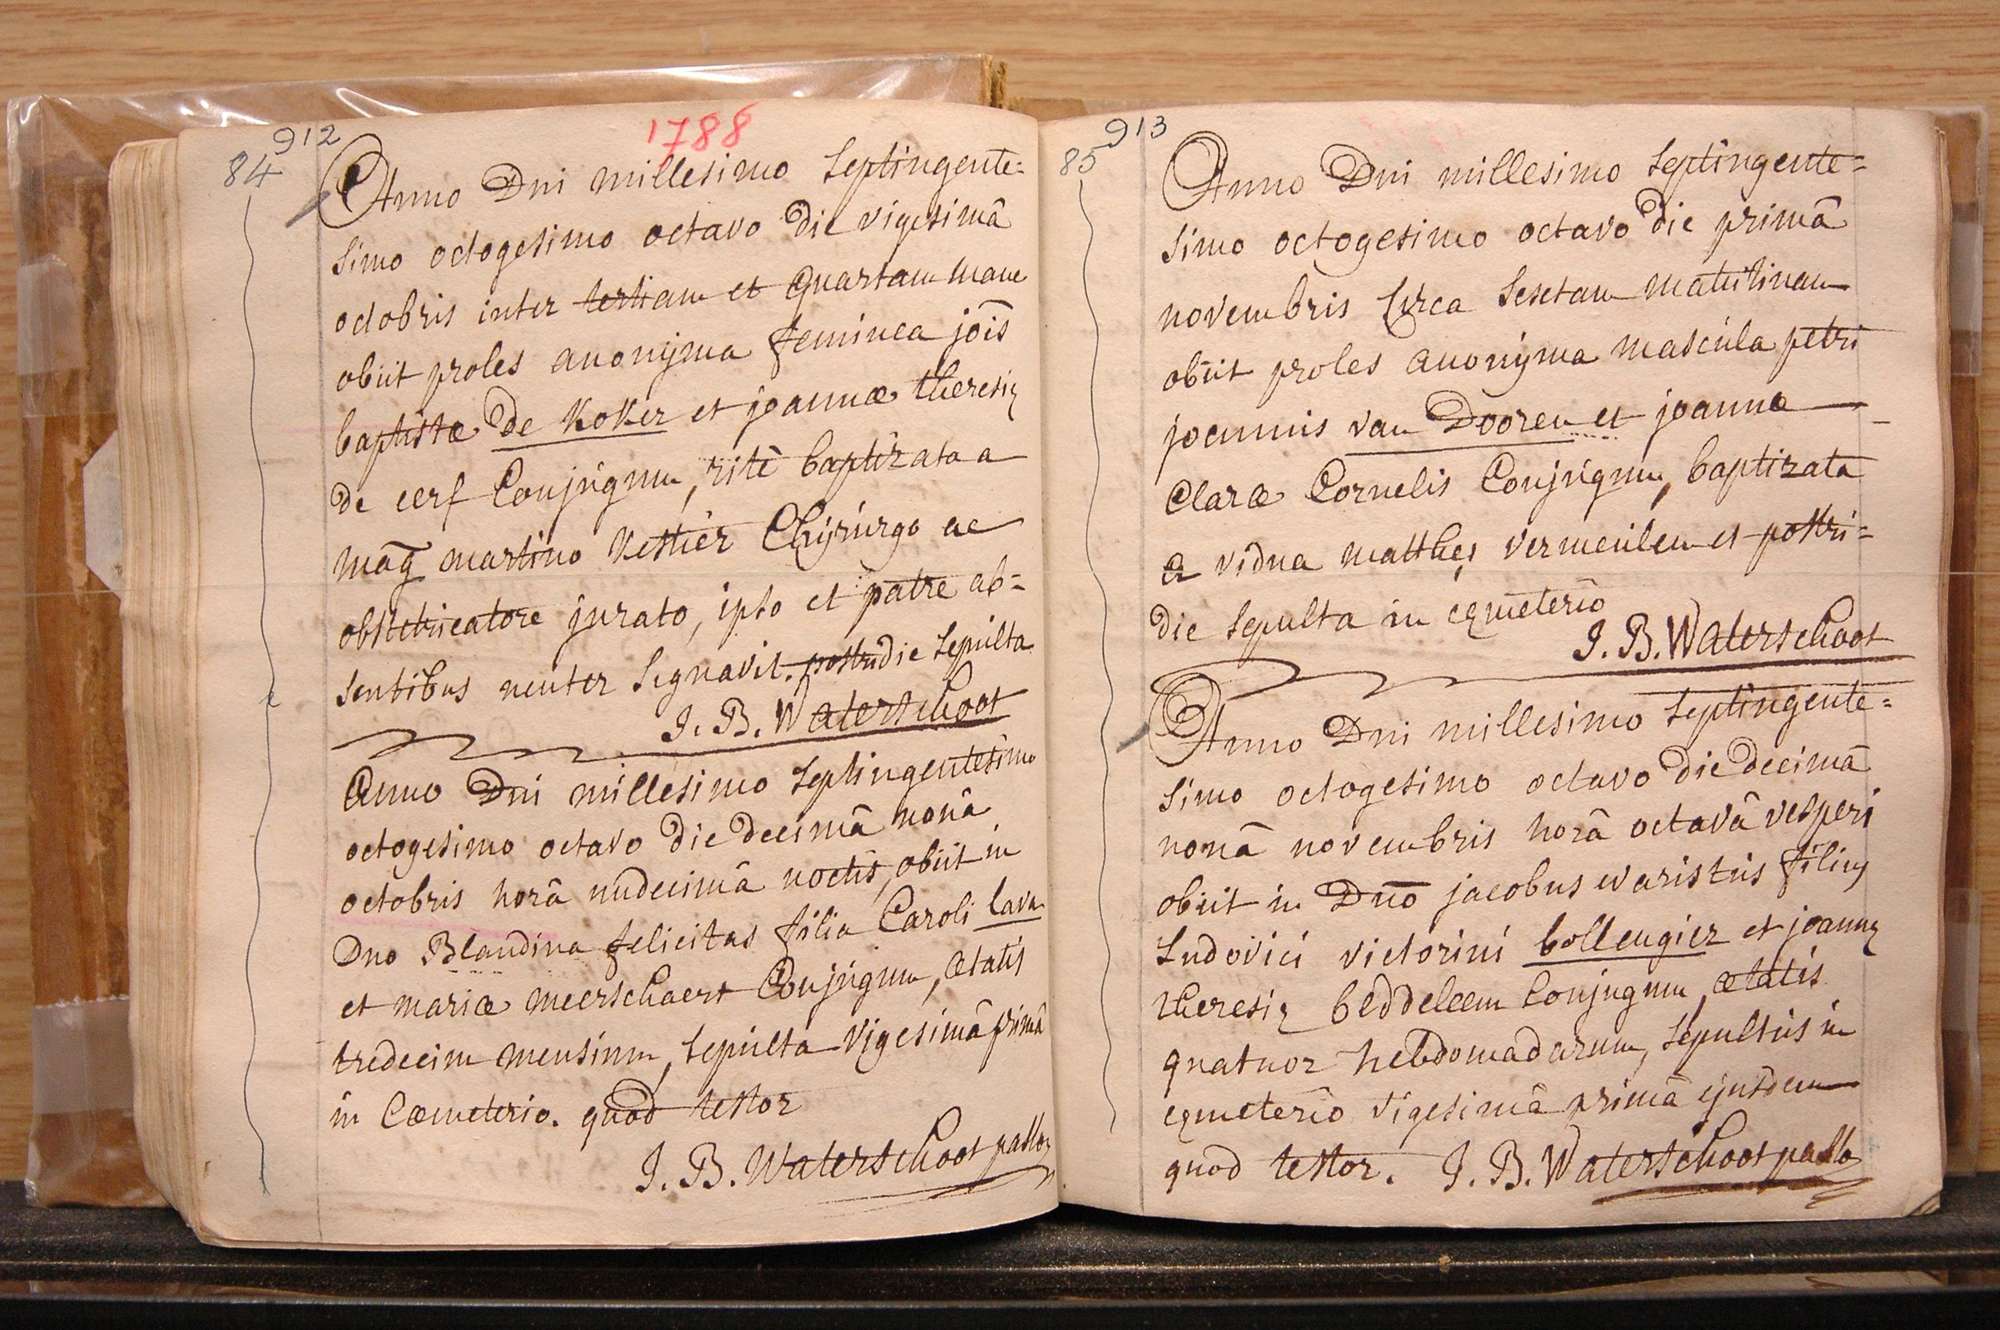 912
84
1788
Anno Dni millesimo septingente=
simo octogesimo octavo die vigesimâ
octobris inter tertiam et quartam mane
obiit proles anonÿma feminea jois
baptistæ de Koker et joannæ theresię
de cerf Conjugum, ritè baptizata a
mag martino Kestier Chÿrurgo ac
obstetricatore jurato, ipso et patre ab=
sentibus neuter signavit. postridie sepulta
J. B. Waterschoot
Anno Dni millesimo septingentesimo
octogesimo octavo die decimâ nonâ
octobris horâ undecimâ noctis, obiit in
Dno Blandina felicitas filia Caroli Lava
et mariæ meerschaert Conjugum, ætatis
tredecim mensium, sepulta vigesimâ primâ
in Cœmeterio. quod testor
J. B. Waterschoot pastor
913
85
Anno Dni millesimo septingente=
simo octogesimo octavo die primâ
novembris circa sextam matutinam
obiit proles anonÿma mascula petri
joannis van Dooren et joanna
Claræ Cornelis Conjugum, baptizata
a vidua matthęi vermeulen et postri=
die sepulta in cęmeterio
J. B. Waterschoot
Anno Dni millesimo septingente=
simo octogesimo octavo die decimâ
nonâ novembris horâ octavâ vesperi
obiit in Dno jacobus evaristus filius
Ludovici victorini bollengier et joannę
theresię beddeleem Conjugum, ætatis
quatuor hebdomadarum, sepultus in
cęmeterio vigesimâ primâ ejusdem
quod testor. J. B. Waterschoot pastor